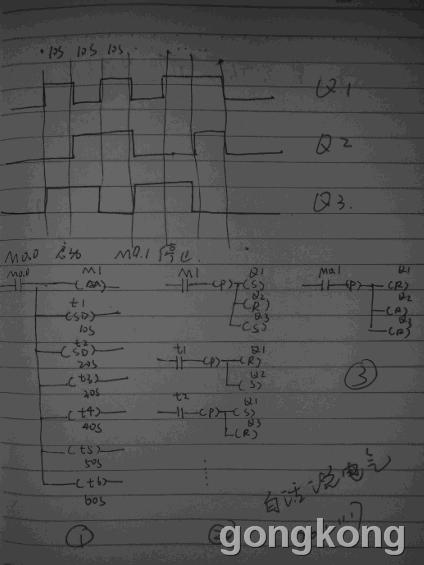 10S 10S 10S
Q1
Q2
Q3.
M0.0 启动 M0.1 停止
M0.0 M1 M1 (P) Q1 (S) M0.1 (P) Q1 (R)
Q2 (R) Q2 (R)
Q3 (S) Q3 (R)
t1 (SD) 10S
t2 (SD) 20S t1 (P) Q1 (R)
Q2 (S)
(t3) 30S
(t4) 40S t2 (P) Q1 (S)
Q3 (R)
(t5) 50S
(t6) 60S
① ③
白话说电气
gongkong